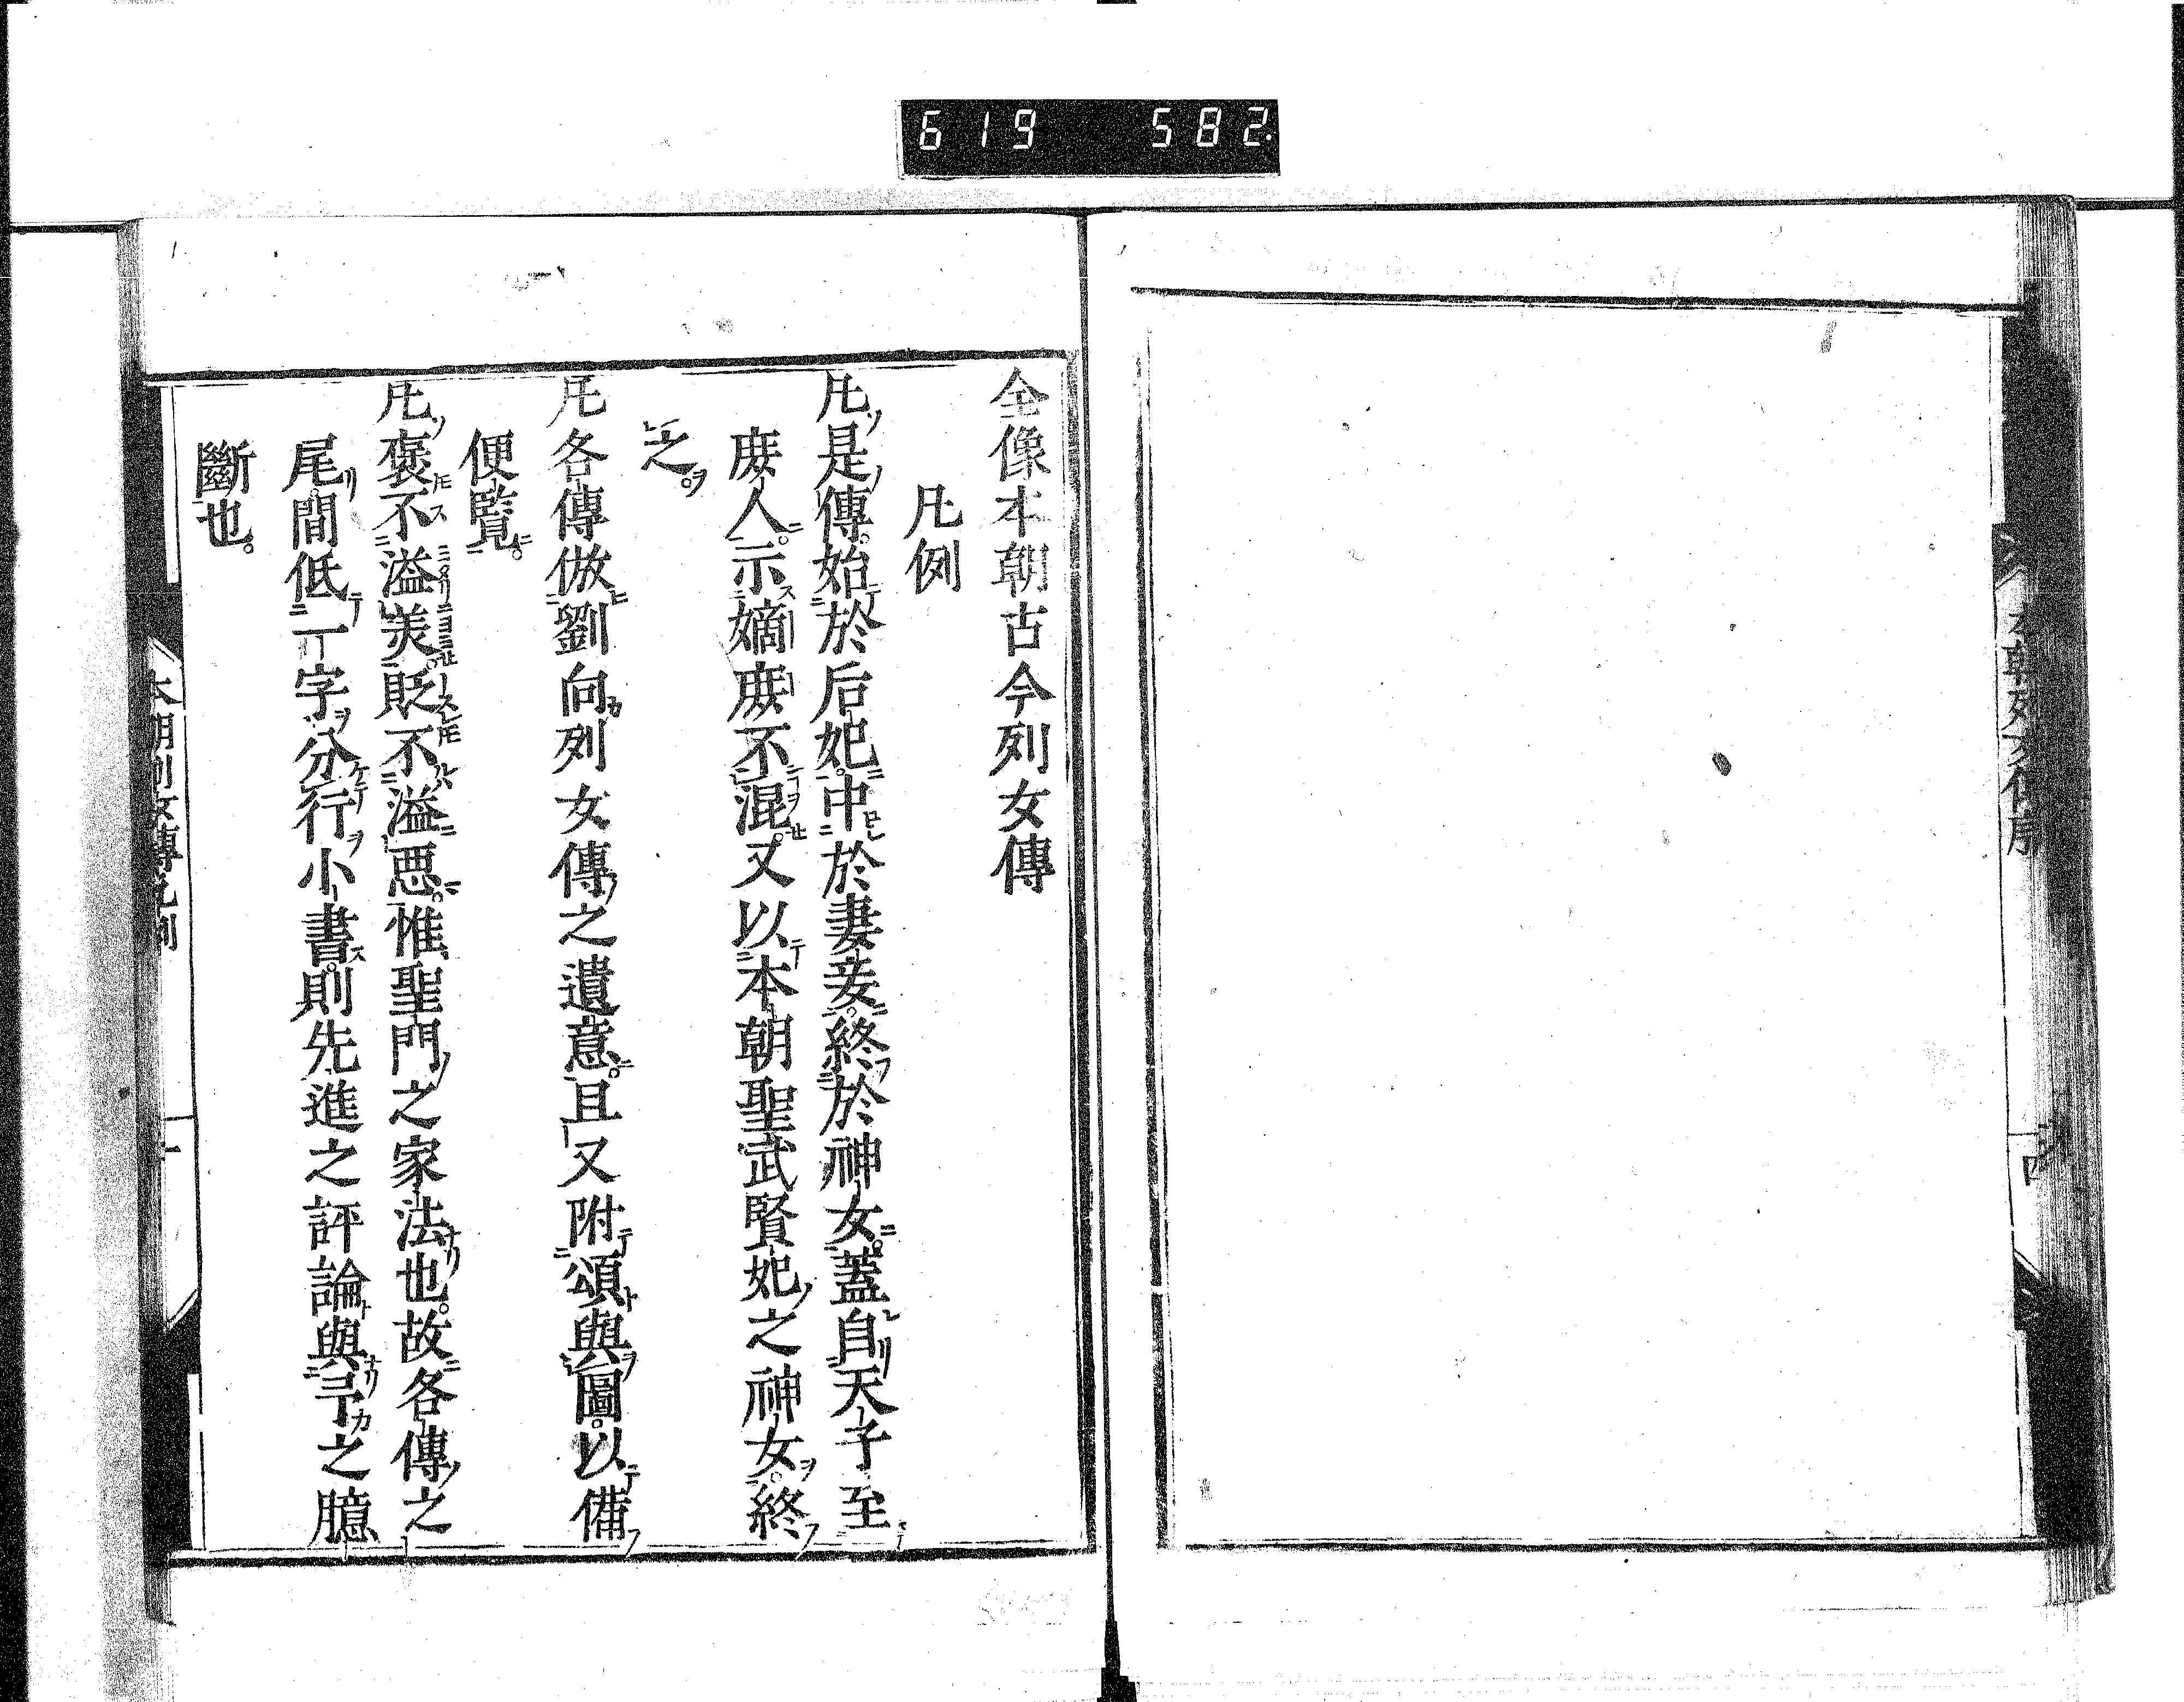 619 582
全像本朝古今列女傳
凡例
凡是傳始於后妃中於妻妾終於神女蓋自天子至
庶人示嫡庶不混又以本朝聖武賢妃之神女終
之
凡各傳倣劉向列女傳之遺意且又附頌與圖以備
便覽
凡褒不溢美貶不溢惡惟聖門之家法也故各傳之
尾間低一字分行小書則先進之評論與予之臆
斷也
本朝列女傳凡例